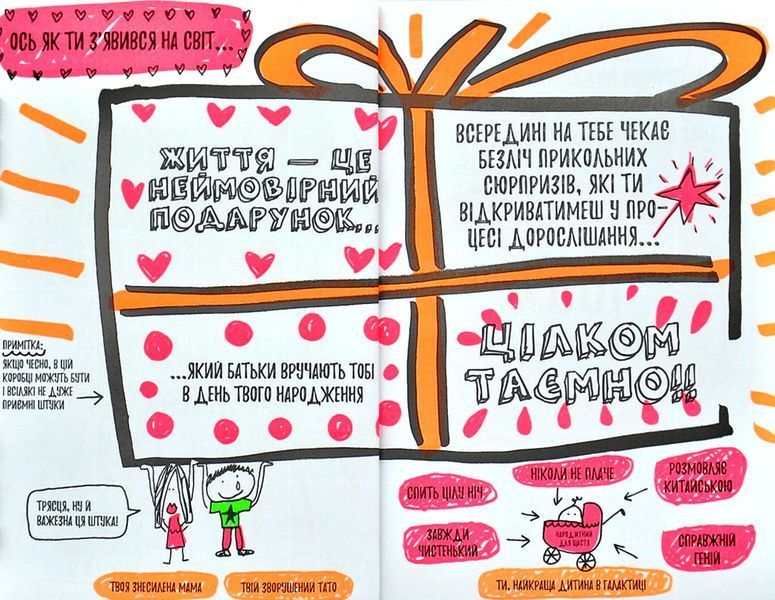 ОСЬ ЯК ТИ З'ЯВИВСЯ НА СВІТ...
ЖИТТЯ — ЦЕ
НЕЙМОВІРНИЙ
ПОДАРУНОК...
ВСЕРЕДИНІ НА ТЕБЕ ЧЕКАЄ
БЕЗЛІЧ ПРИКОЛЬНИХ
СЮРПРИЗІВ, ЯКІ ТИ
ВІДКРИВАТИМЕШ У ПРО-
ЦЕСІ ДОРОСЛІШАННЯ...
ПРИМІТКА:
ЯКЩО ЧЕСНО, В ЦІЙ
КОРОБЦІ МОЖУТЬ БУТИ
І ВСІЛЯКІ НЕ ДУЖЕ
ПРИЄМНІ ШТУКИ
...ЯКИЙ БАТЬКИ ВРУЧАЮТЬ ТОБІ
В ДЕНЬ ТВОГО НАРОДЖЕННЯ
ЦІЛКОМ
ТАЄМНО!!
ТРЯСЦЯ, НУ Й
ВАЖЕЗНА ЦЯ ШТУКА!
ТВОЯ ЗНЕСИЛЕНА МАМА
ТВІЙ ЗВОРУШЕНИЙ ТАТО
СПИТЬ ЦІЛУ НІЧ
НІКОЛИ НЕ ПЛАЧЕ
РОЗМОВЛЯЄ
КИТАЙСЬКОЮ
ЗАВЖДИ
ЧИСТЕНЬКИЙ
НАРОДЖЕНИЙ
ДЛЯ ЩАСТЯ
СПРАВЖНІЙ
ГЕНІЙ
ТИ, НАЙКРАЩА ДИТИНА В ГАЛАКТИЦІ